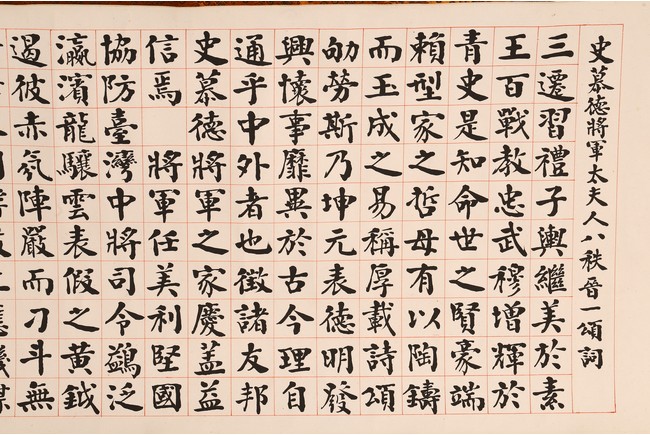 史慕德將軍太夫人八秩晉一頌詞
三遷習禮子輿繼美於素
王百戰教忠武穆增輝於
青史是知命世之賢豪端
賴型家之哲母有以陶鑄
而玉成之易稱厚載詩頌
劬勞斯乃坤元表德明發
興懷事靡異於古今理自
通乎中外者也徵諸友邦
史慕德將軍之家慶蓋益
信焉 將軍任美利堅國
協防臺灣中將司令鷁泛
瀛濱龍驤雲表假之黃鉞
遏彼赤氛陣嚴而刁斗無